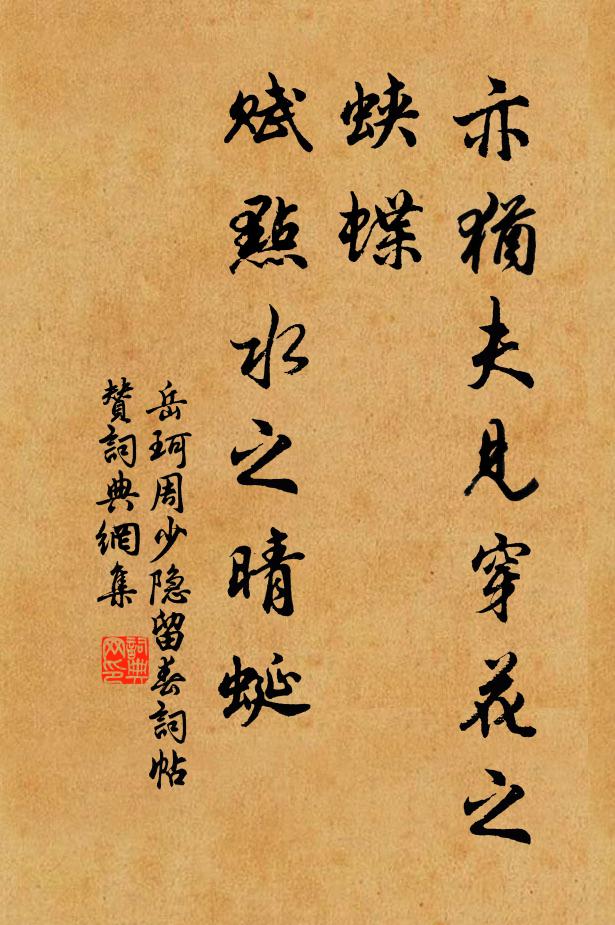 亦猶夫見穿花之
蛺蝶
賦點水之晴蜒
岳珂周少隐留春詞帖
贊詞典網集
詞典网印